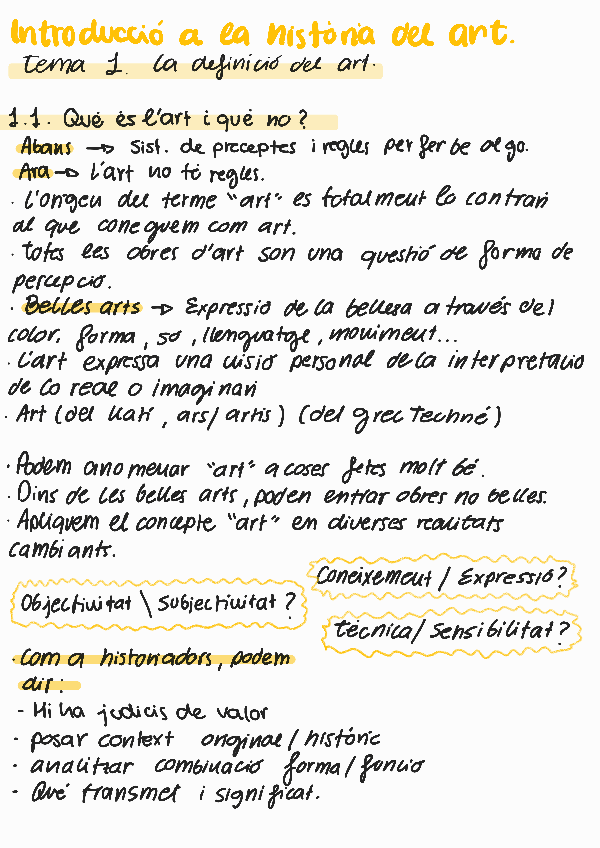 Introducció a la història del art.
Tema 1. La definició del art.
1.1. Qué és l'art i qué no?
Abans → Sist. de preceptes i regles per fer be algo.
Ara → L'art no té regles.
· L'origeu del terme "art" es totalment lo contrari
al que coneguem com art.
· Totes les obres d'art son una questió de forma de
percepció.
· Belles arts → Expressio de la bellesa a través del
color, forma, so, llenguatge, moviment...
· L'art expressa una visió personal de la interpretació
de lo real o imaginari
· Art (del llatí, ars/artis) (del grec Techné)
· Podem anomenar "art" a coses fetes molt bé.
· Dins de les belles arts, poden entrar obres no belles.
· Apliquem el concepte "art" en diverses realitats
cambiants.
Coneixement / Expressió?
Objectivitat \ Subjectivitat?
Tècnica / Sensibilitat?
· Com a historiadors, podem
dir:
- Hi ha judicis de valor
- posar context original / històric
- analitzar combinació forma/funció
- Qué transmet i significat.